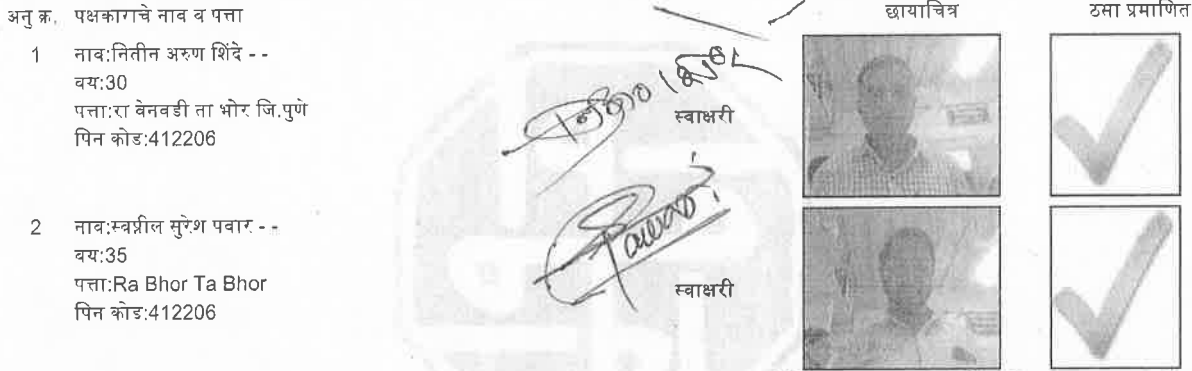 अनु क्र. पक्षकाराचे नाव व पत्ता छायाचित्र ठसा प्रमाणित
1 नाव:नितीन अरुण शिंदे - -
वय:30
पत्ता:रा वेनवडी ता भोर जि.पुणे
पिन कोड:412206
स्वाक्षरी
2 नाव:स्वप्नील सुरेश पवार - -
वय:35
पत्ता:Ra Bhor Ta Bhor
पिन कोड:412206
स्वाक्षरी